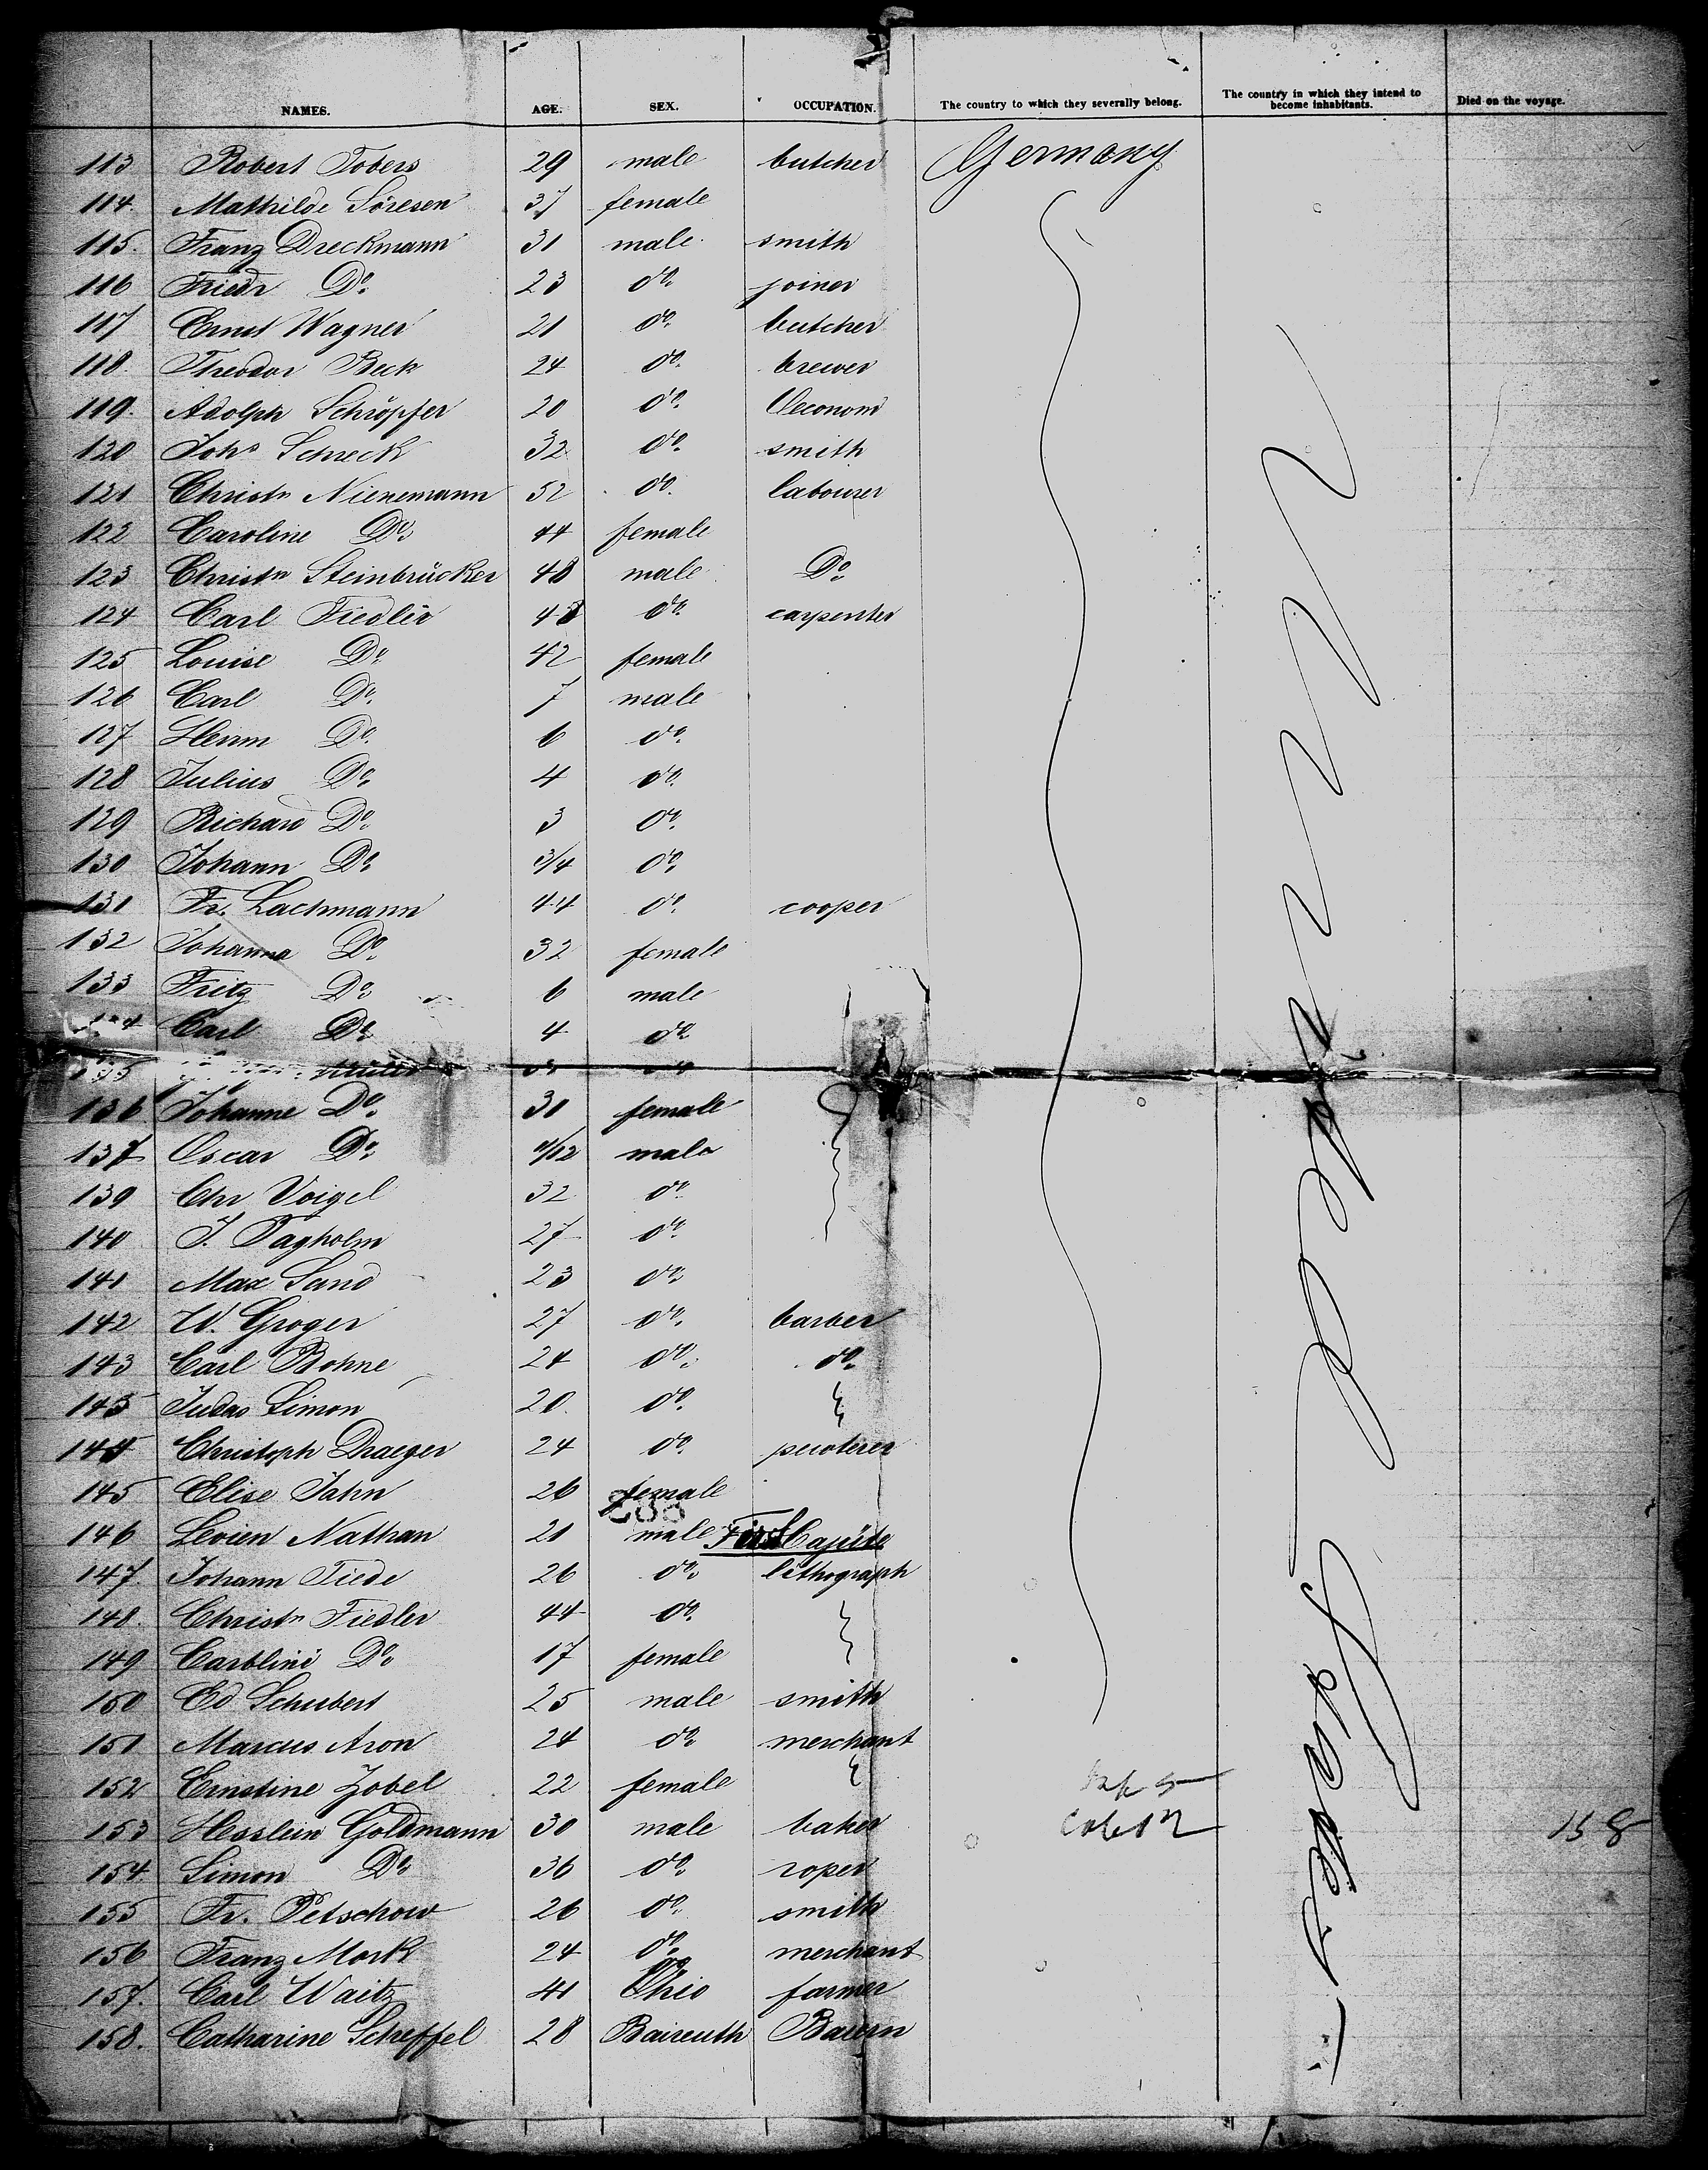 NAMES. AGE. SEX. OCCUPATION. The country to which they severally belong. The country in which they intend to become inhabitants. Died on the voyage.
113 Robert Tobers 29 male butcher Germany
114. Mathilde Söresen 37 female
115. Franz Dreckmann 31 male smith
116 Friedr Do. 23 do. joiner
117 Ernst Wagner 21 do. butcher
118. Theodor Beck 24 do. brewer
119. Adolph Schröpfer 20 do. Oeconom
120 Johs Schreck 32 do. smith
121 Christn Nienemann 52 do. labourer
122 Caroline Do. 44 female
123 Christn Steinbrücker 48 male Do.
124 Carl Fiedler 43 do. carpenter
125 Louise Do. 42 female
126 Carl Do. 7 male
127 Herrm Do. 6 do.
128 Julius Do. 4 do.
129 Richard Do. 3 do.
130 Johann Do. 3/4 do.
131 Fr. Lachmann 44 do. cooper
132 Johanna Do. 32 female
133 Fritz Do. 6 male
Carl Do. 4 do.
136 Johanne Do. 30 female
137 Oscar Do. 11/12 male
139 Chr Voigel 32 do.
140 J. Pagholm 27 do.
141 Max Sand 23 do.
142 W. Groger 27 do. barber
143 Carl Bohne 24 do. do.
143 Judas Simon 20 do.
144 Christoph Draeger 24 do.
145 Elise Jahn 26 female
146 Levien Nathan 21 male First Cajüte
147. Johann Tiede 26 do. lithograph
148. Christn Fiedler 44 do.
149 Carolini Do. 17 female
150 Ed Schubert 25 male smith
151 Marcus Aron 24 do. merchant
152 Ernstine Zobel 22 female
153 Hesslein Goldmann 30 male baker 158
154. Simon Do. 36 do. roper
155 Fr. Petschow 26 do. smith
156 Franz Mork 24 do. merchant
157. Carl Waitz 41 Ohio farmer
158. Catharine Scheffel 28 Baireuth Baiern